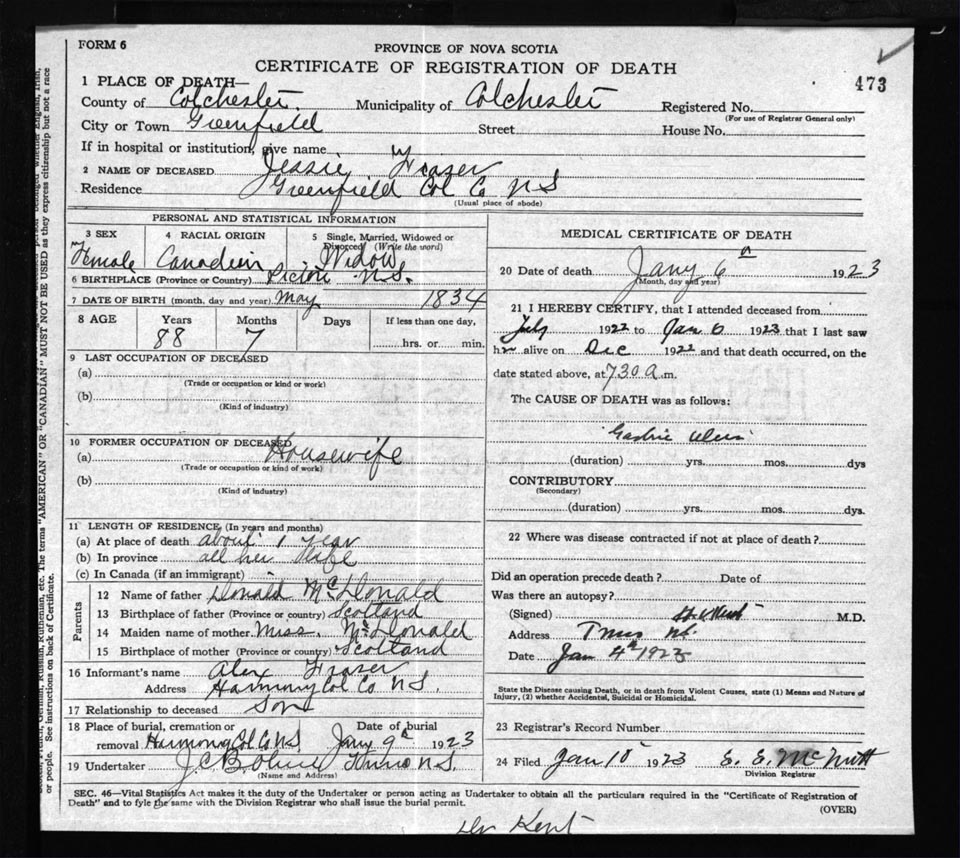 FORM 6
PROVINCE OF NOVA SCOTIA
CERTIFICATE OF REGISTRATION OF DEATH
473
1 PLACE OF DEATH—
County of Colchester. Municipality of Colchester Registered No.
(For use of Registrar General only)
City or Town Greenfield Street House No.
If in hospital or institution, give name
2 NAME OF DECEASED Jessie Fraser
Residence Greenfield Col Co N S
(Usual place of abode)
PERSONAL AND STATISTICAL INFORMATION
3 SEX 4 RACIAL ORIGIN 5 Single, Married, Widowed or Divorced (Write the word)
Female Canadian Widow
6 BIRTHPLACE (Province or Country) Pictou N.S.
7 DATE OF BIRTH (month, day and year) May 1834
8 AGE Years Months Days If less than one day,
88 7 hrs. or min.
9 LAST OCCUPATION OF DECEASED
(a)
(Trade or occupation or kind or work)
(b)
(Kind of industry)
10 FORMER OCCUPATION OF DECEASED
(a) Housewife
(Trade or occupation or kind of work)
(b)
(Kind of industry)
11 LENGTH OF RESIDENCE (In years and months)
(a) At place of death about 1 year
(b) In province all her life
(c) In Canada (if an immigrant)
Parents
12 Name of father Donald McDonald
13 Birthplace of father (Province or country) Scotland
14 Maiden name of mother Miss. McDonald
15 Birthplace of mother (Province or country) Scotland
16 Informant's name Alex Fraser
Address Harmony Col Co N S.
17 Relationship to deceased Son
18 Place of burial, cremation or Date of burial
removal Harmony Col Co N.S. Jany 9th 1923
19 Undertaker J.C.B. Truro N.S.
(Name and Address)
MEDICAL CERTIFICATE OF DEATH
20 Date of death Jany 6th 1923
(Month, day and year)
21 I HEREBY CERTIFY, that I attended deceased from
July 1922 to Jan 6 1923 that I last saw
her alive on Dec 1922 and that death occurred, on the
date stated above, at 7.30 a.m.
The CAUSE OF DEATH was as follows:
Gastric Ulcer
(duration) yrs. mos. dys
CONTRIBUTORY
(Secondary)
(duration) yrs. mos. dys.
22 Where was disease contracted if not at place of death?
Did an operation precede death? Date of
Was there an autopsy?
(Signed) M.D.
Address Truro NS.
Date Jan 1923
State the Disease causing Death, or in death from Violent Causes, state (1) Means and Nature of
Injury, (2) whether Accidental, Suicidal or Homicidal.
23 Registrar's Record Number
24 Filed Jan 10 1923 E. E. McNutt
Division Registrar
SEC. 46—Vital Statistics Act makes it the duty of the Undertaker or person acting as Undertaker to obtain all the particulars required in the "Certificate of Registration of
Death" and to fyle the same with the Division Registrar who shall issue the burial permit.
(OVER)
Dr Kent